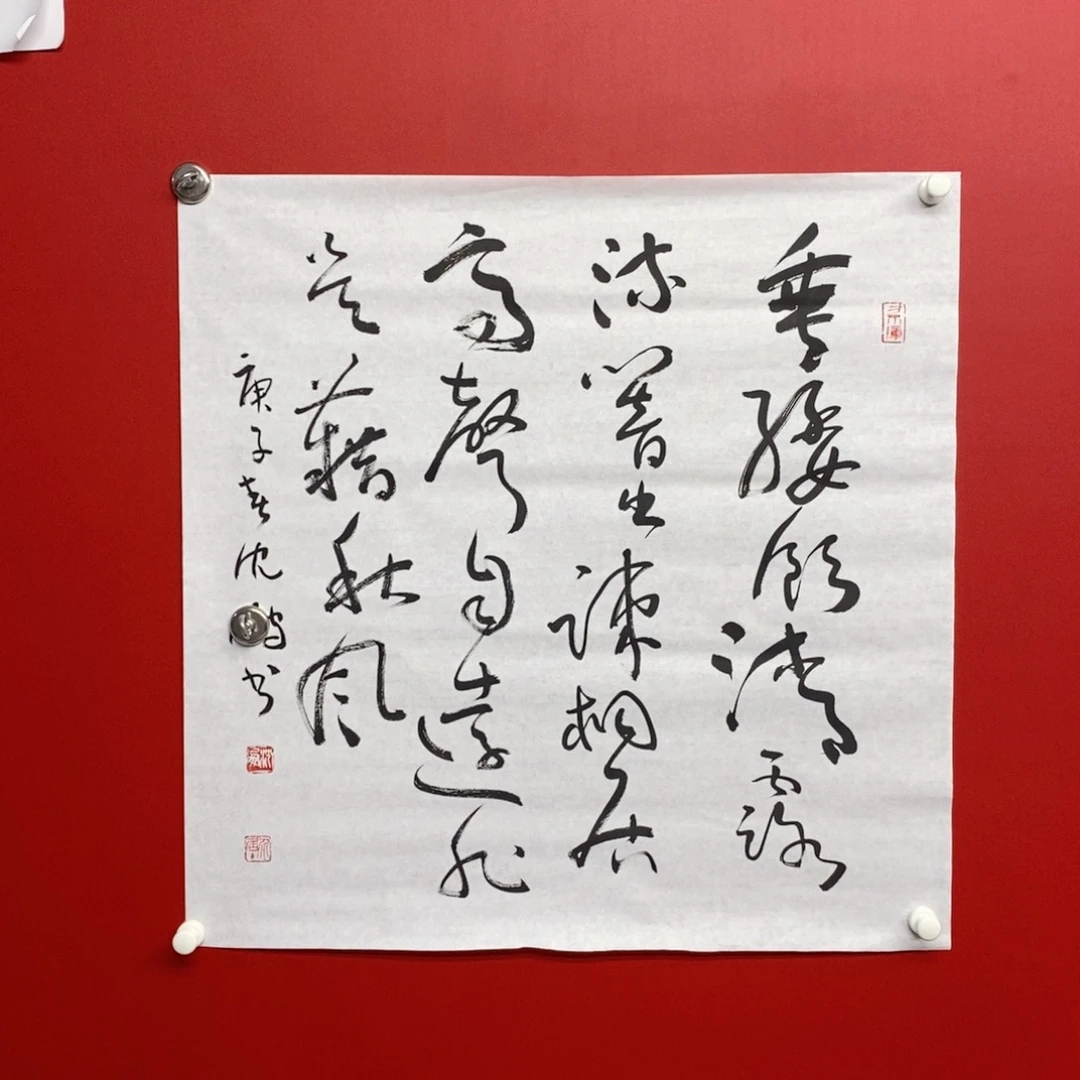 垂緌飲清露
流響出疎桐居
高聲自遠非
是藉秋風
庚子春沈书